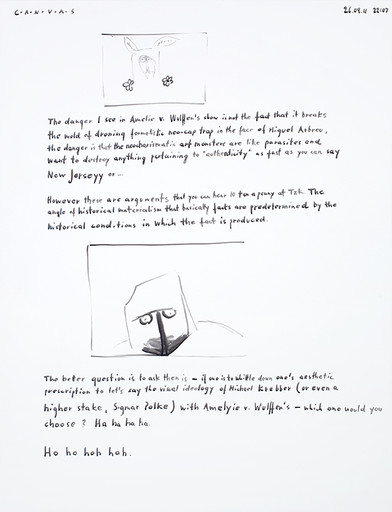 C·A·N·V·A·S
26.09.11 22:07
The danger I see in Amelie v. Wulffen's show is not the fact that it breaks
the mold of droning neo-cap trap in the face of Miguel Abreu,
the danger is that the neocharismatic art monsters are like parasites and
want to destroy anything pertaining to "authenticity" as fast as you can say
New Jerseyy or –
However these are arguments that you can hear 10 to a penny at Tzk. The
angle of historical materialism that basically facts are predetermined by the
historical conditions in which the fact is produced.
The better question is to ask then is – if one is to whittle down one's aesthetic
prescription to let's say the visual ideology of Michael Krebber (or even a
higher stake, Sigmar Polke) with Amelyie v. Wulffen's – which one would you
choose? Ha ha ha ha.
Ho ho hoh hoh.